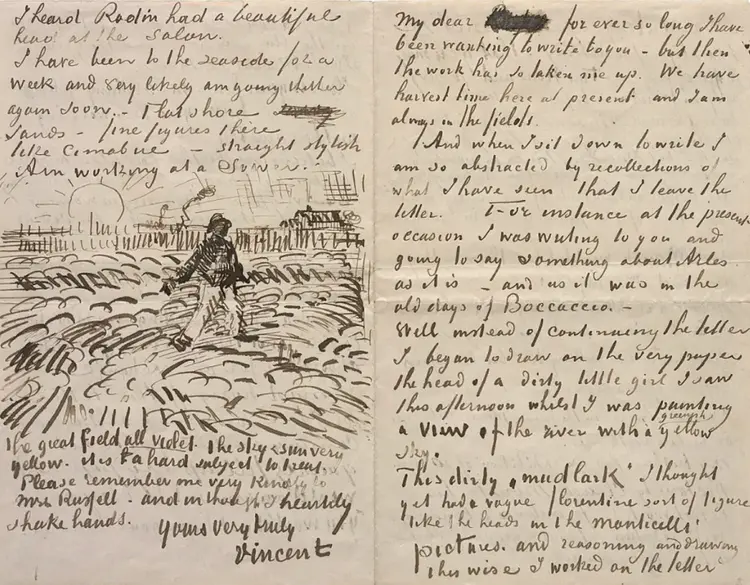 I heard Rodin had a beautiful
head at the Salon.
I have been to the seaside for a
week and very likely am going thither
again soon. – Flat shore
sands – fine figures there
like Cimabue – straight stylish
Am working at a Sower.
the great field all violet. the sky & sun very
yellow. it is a hard subject to treat.
Please remember me very kindly to
Mrs Russell – and in thought I heartily
shake hands.
Yours very truly
Vincent
My dear for ever so long I have
been wanting to write to you – but then
the work has so taken me up. We have
harvest time here at present and I am
always in the fields.
And when I sit down to write I
am so abstracted by recollections of
what I have seen that I leave the
letter. For instance at the present
occasion I was writing to you and
going to say something about Arles
as it is – and as it was in the
old days of Boccaccio. –
Well instead of continuing the letter
I began to draw on the very paper
the head of a dirty little girl I saw
this afternoon whilst I was painting
a view of the river with a greenish yellow
sky.
This dirty „mudlark" I thought
yet had a vague florentine sort of figure
like the heads in the monticelli
pictures. and reasoning and drawing
this wise I worked on the letter